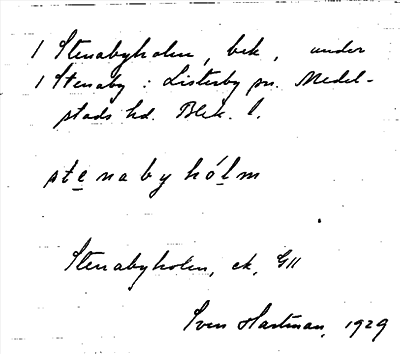 1 Stenabyholm, bek, under
1 Stenaby : Listerby sn. Medel-
stads hd. Blek. l.
ste̲nabyhól̲m
Stenabyholm, ek, G11
Sven Hartman, 1929